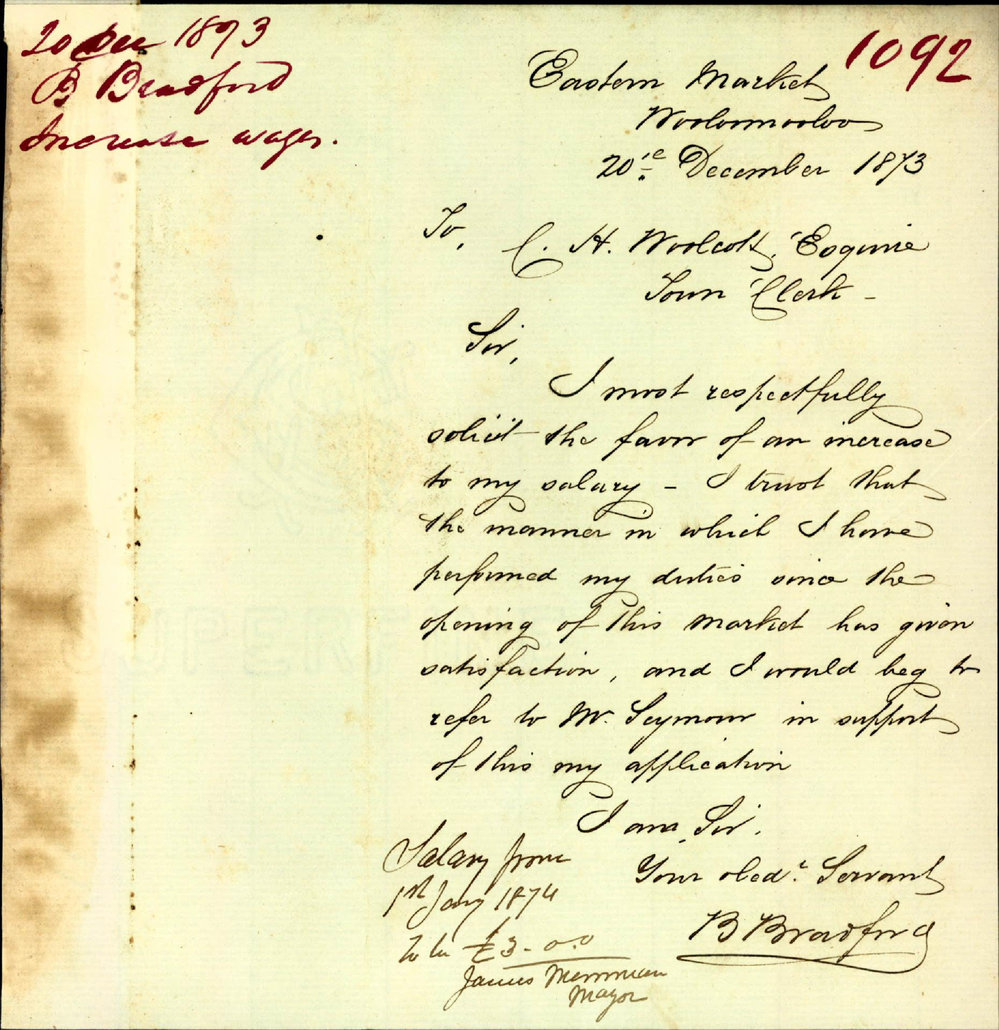 20 Dec 1873
B Bradford
Increase wages.
1092
Eastern Market
Wooloomooloo
20th December 1873
To,
C. H. Woolcott, Esquire
Town Clerk -
Sir,
I most respectfully
solicit the favor of an increase
to my salary - I trust that
the manner in which I have
performed my duties since the
opening of this Market has given
satisfaction, and I would beg to
refer to Mr. Seymour in support
of this my application
I am Sir.
Your obedt. Servant
B Bradford
Salary from
1st Jany 1874
to be £3-0.0
James Merriman
Mayor